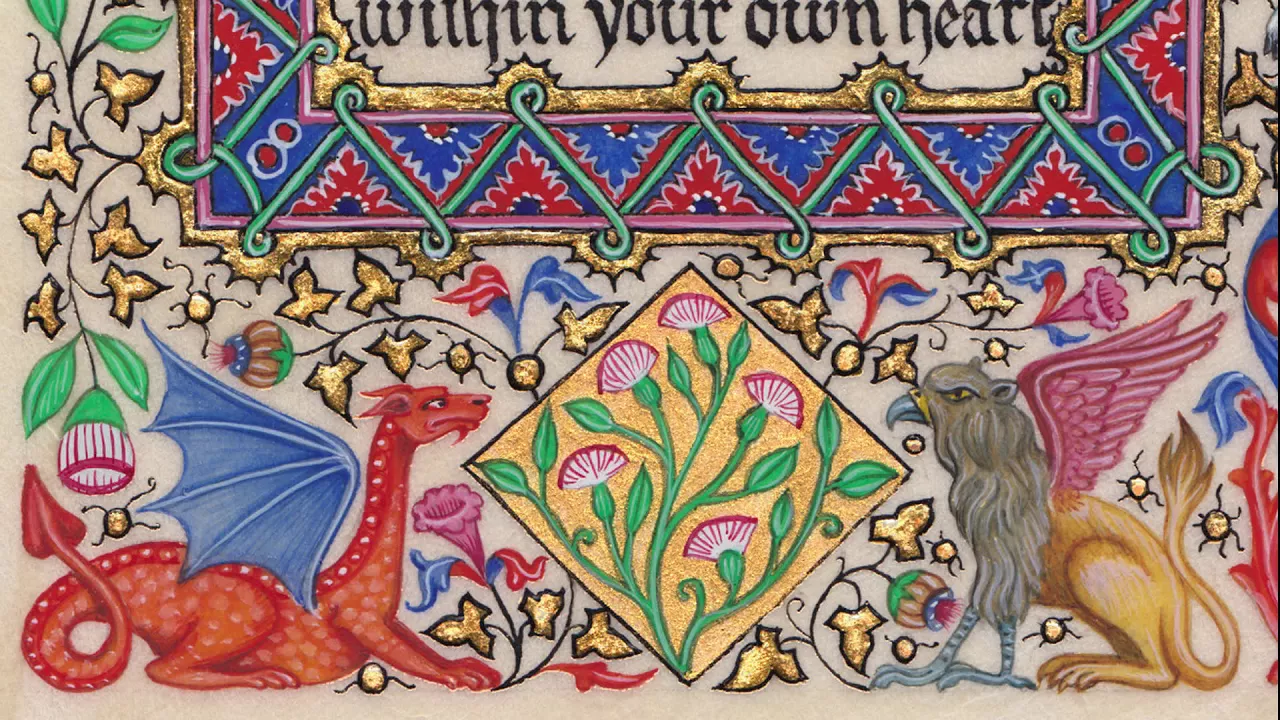 within your own heart